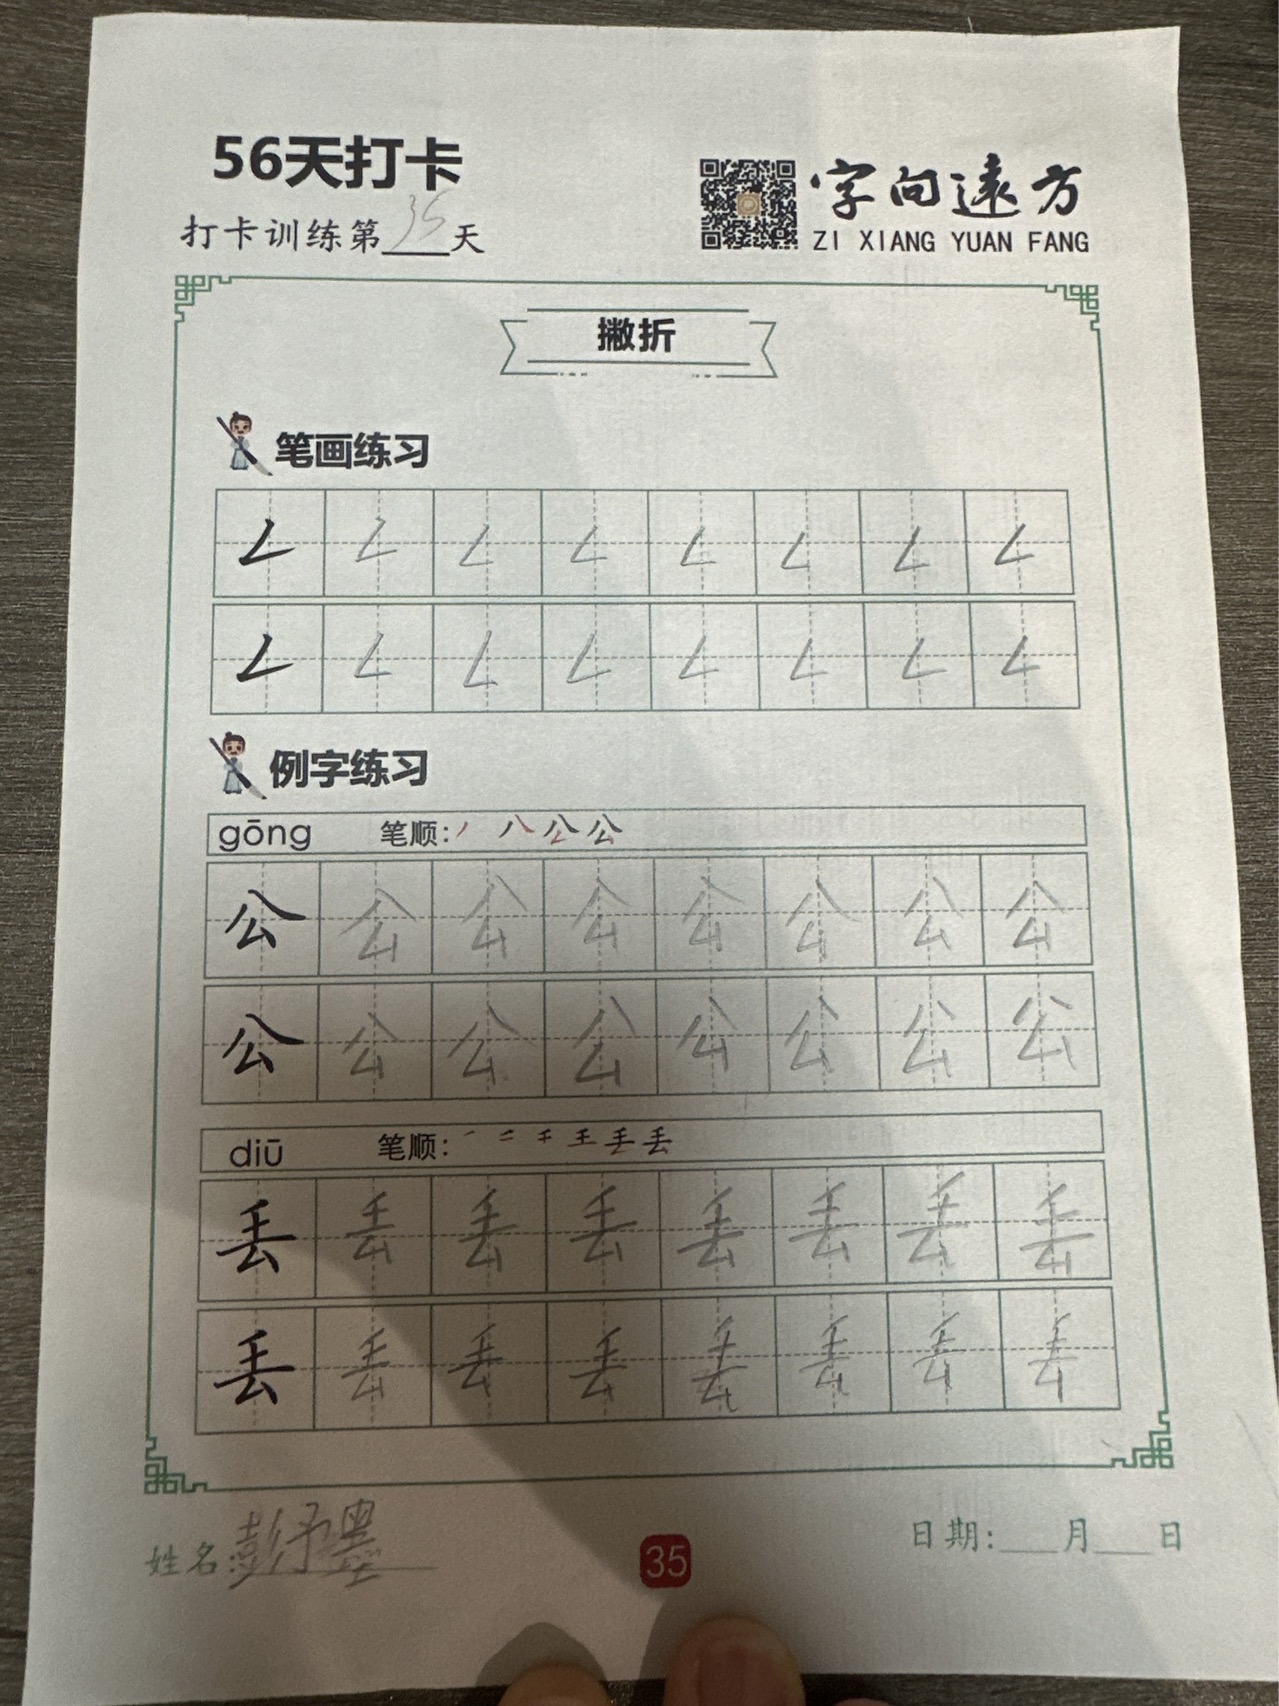 56天打卡
打卡训练第35天
字向远方
ZI XIANG YUAN FANG
撇折
笔画练习
例字练习
gōng 笔顺：丿 八 公 公
公 公 公 公 公 公 公 公
公 公 公 公 公 公 公 公
diū 笔顺：
丢 丢 丢 丢 丢 丢 丢 丢
丢 丢 丢 丢 丢 丢 丢 丢
姓名：彭予墨
35
日期：___月___日